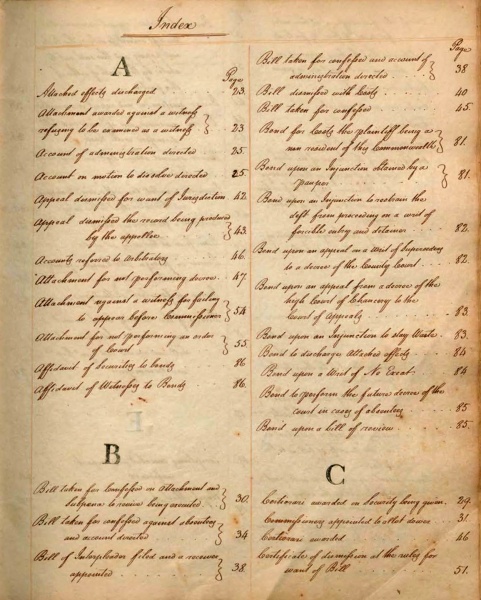 Index
A
Page
Attached effects discharged 23.
Attachment awarded against a witness
refusing to be examined as a witness 23
Account of administration directed 25.
Account on motion to dissolve directed 25.
Appeal dismissed for want of Jurisdiction 42.
Appeal dismissed the record being produced
by the appellee 43.
Accounts referred to Arbitrators 46.
Attachment for not performing decree 47.
Attachment against a witness for failing
to appear before Commissioner 54.
Attachment for not performing an order
of Court 55.
Affidavit of Securities to bonds 86
Affidavit of Witnesses to Bonds 86.
B
Bill taken for Confessed on Attachment and
Subpœna to revive being executed 30.
Bill taken for confessed against absentees
and account directed 34
Bill of Interpleader filed and a receiver
appointed 38.
Page
Bill taken for confessed and account of
administration directed 38
Bill dismissed with Costs 40
Bill taken for confessed 45.
Bond for Costs the plaintiff being a
non resident of this Commonwealth 81.
Bond upon an Injunction obtained by a
pauper 81.
Bond upon an Injunction to restrain the
deft from proceeding on a writ of
forcible entry and detainer 82.
Bond upon an appeal on a Writ of Supersedeas
to a decree of the County Court 82.
Bond upon an appeal from a decree of the
high Court of Chancery to the
Court of Appeals 83.
Bond upon an Injunction to stay Waste 83.
Bond to discharge Attached effects 84
Bond upon a Writ of Ne Exeat 84
Bond to perform the future decree of the
court in cases of absentees 85
Bond upon a bill of review 85.
C
Certiorari awarded on Security being given 24.
Commissioners appointed to allot dower 31.
Certiorari awarded 46
Certificate of dismission at the rules for
want of Bill 51.